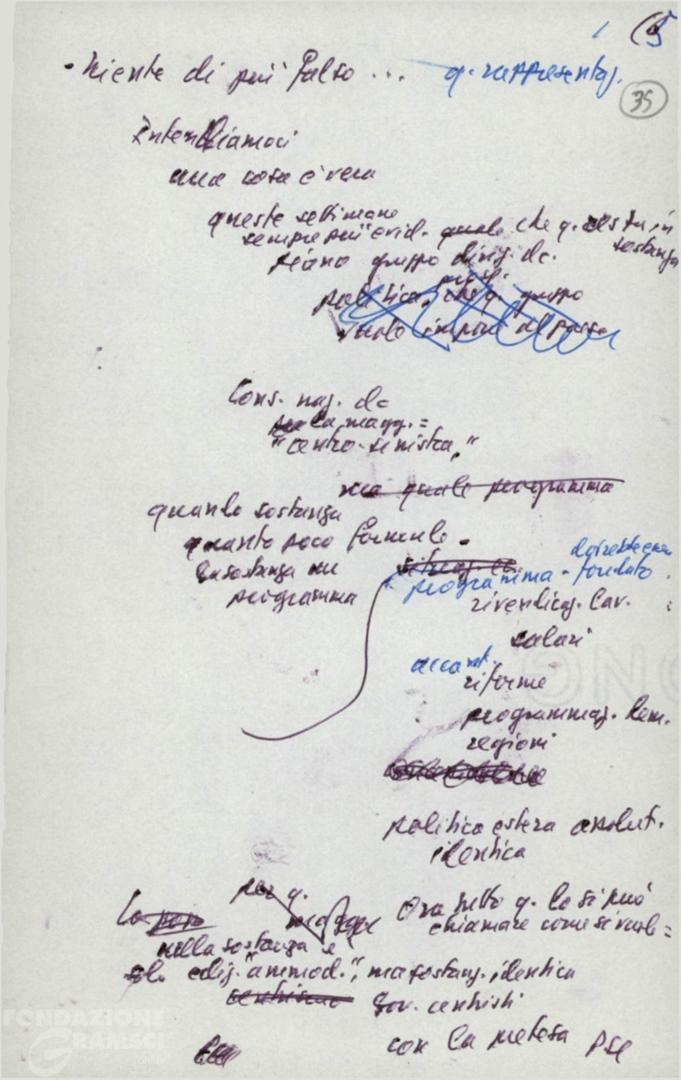 5
- Niente di più falso ... q. rappresentaz.
35
Intendiamoci
una cosa è vera
queste settimane
sempre più evid. quale che q. resta in
sostanza
piano gruppo dirig. dc.
politica, che q. gruppo
vuole imporre al paese
Cons. naz. dc
la magg. =
"centro-sinistra"
ma quale programma
quanto sostanza
quanto poco formule -
in sostanza un
programma
programma - fondato
rivendicaz. lav.
salari
accant.
riforme
programmaz. dem.
regioni
politica estera assolut.
identica
per q.
Ora tutto q. lo si può
chiamare come si vuole =
nella sostanza è
ediz. "ammod.", ma sostanz. identica
centrismo gov. centristi
con la pretesa PSI
FONDAZIONE
GRAMSCI